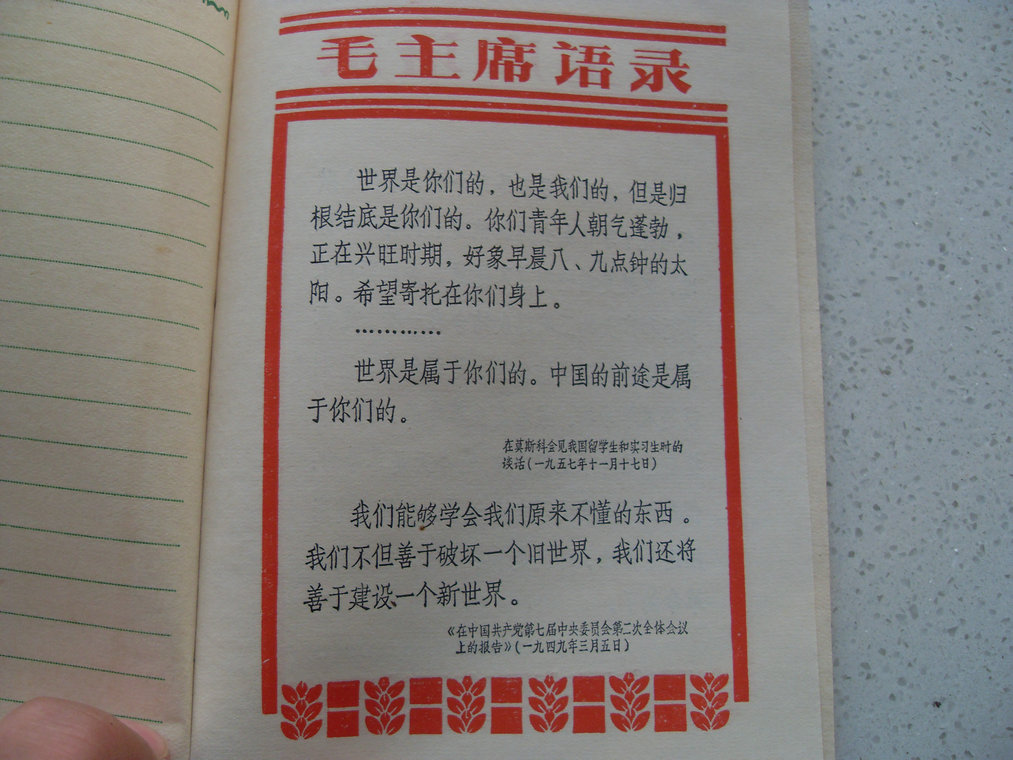 毛主席语录
世界是你们的，也是我们的，但是归
根结底是你们的。你们青年人朝气蓬勃，
正在兴旺时期，好象早晨八、九点钟的太
阳。希望寄托在你们身上。
…………
世界是属于你们的。中国的前途是属
于你们的。
在莫斯科会见我国留学生和实习生时的
谈话（一九五七年十一月十七日）
我们能够学会我们原来不懂的东西。
我们不但善于破坏一个旧世界，我们还将
善于建设一个新世界。
《在中国共产党第七届中央委员会第二次全体会议
上的报告》（一九四九年三月五日）